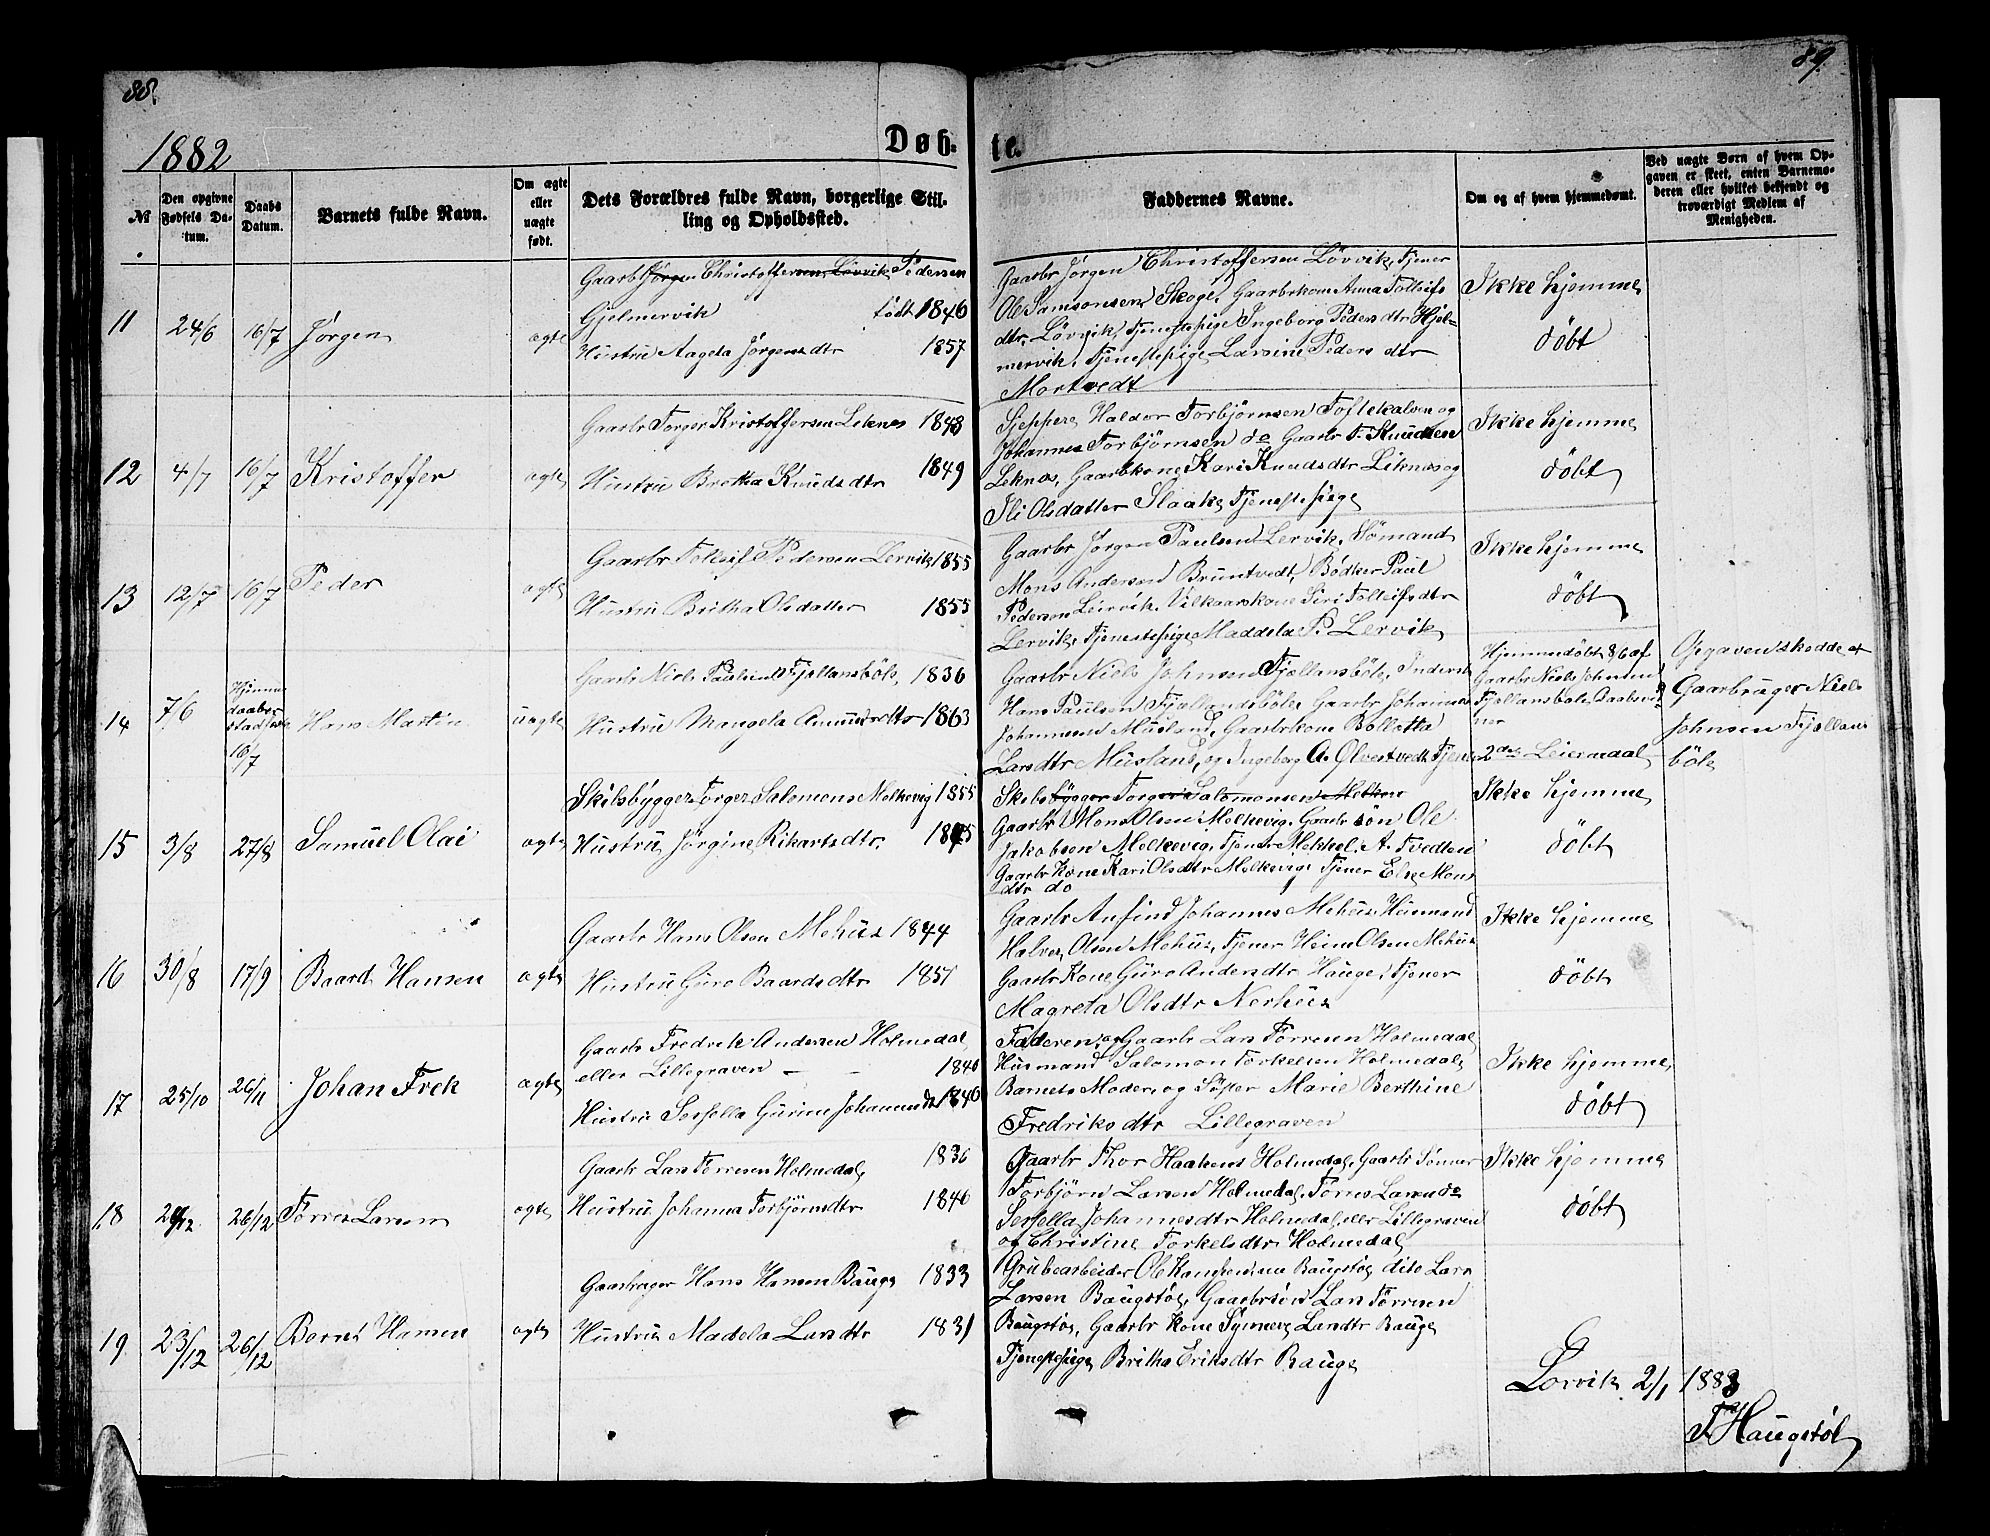 88.
89
1882
Døb-
te.
№
Den opgivne Fødsels Datum.
Daabs Datum.
Barnets fulde Navn.
Om ægte eller uægte født.
Dets Forældres fulde Navn, borgerlige Stilling og Opholdssted.
Faddernes Navne.
Om og af hvem hjemmedømt.
Ved uægte Børn af hvem Opgaven er skeet, enten Barnemoderen eller hvilket bekjendt og troværdigt Medlem af Menigheden.
11
24/6
16/7
Jørgen
ægte
Gaarbr Jørgen Christoffersen Løvvik Pedersen
Gjelmervik født 1846
Hustru Aageta Jørgensdtr 1857
Gaarbr Jørgen Christoffersen Løvvik, Tjener
Ole Samsonsen Skoge, Gaarbrkone Anna Tolleifs
dtr Løvvik, Tjenestepige Ingeborg Peders dtr Hjel-
mervik, Tjenestepige Larsine Peders dtr
Mortvedt
Ikke hjemme
døbt
12
4/7
16/7
Kristoffer
ægte
Gaarbr Torger Kristoffersen Leknes 1848
Hustru Brotha Knuds dtr 1849
Sjeppere Haldor Torbjørnsen Toftekalven og
Johannes Torbjørnsen do Gaarbr T. Knudsen
Leknes, Gaarbkone Kari Knudsdtr Liknes og
Ili Olsdatter Slaake Tjenestepige
Ikke hjemme
døbt
13
12/7
16/7
Peder
ægte
Gaarbr Tolleif Pedersen Lervik 1855
Hustru Britha Olsdatter 1855
Gaarbr Jørgen Paulsen Lervik, Sømand
Mons Andersen Bruntvedt, Bødker Paul
Pedersen Leirvik, Vilkaarskone Siri Tolleifsdtr
Lervik, Tjenestepige Maddela P. Lervik
Ikke hjemme
døbt
14
7/6
Hjemme
daaben
stadfæste
16/7
Hans Martin
uægte
Gaarbr Niels Paulsen Fjellansbøle, 1836
Hustru Mangela Amundsdtr 1863
Gaarbr Niels Johnsen Fjellansbøle, Inderst
Hans Paulsen Fjellandsbøle Gaarbr Johannes
Johannesen Musland, Gaarbrkone Bolletta
Larsdtr Musland, og Ingeborg A. Ølvestvedt Tjener
Hjemmedøbt 8/6 af
Gaarbr Niels Johnsen
Fjellansbøle
2den Leiermaal
Opgaven skedde af
Gaarbruger Niels
Johnsen Fjellans
bøle
15
3/8
27/8
Samuel Olai
ægte
Skibsbygger Torger Salomons Melkevig 1855
Hustru Jørgine Rikartsdtr
Skibsbygger Torger Salomonsen Melkev
Gaarbr Mons Olsen Melkevig, Gaarbr søn Ole
Jakobsen Melkevig, Tjener Mekkel A. Tvedten
Gaarbr Kone Kari Olsdtr Melkevige Tjener Else Mons
dtr do
Ikke hjemme
døbt
16
30/8
17/9
Baard Hansen
ægte
Gaarbr Hans Olsen Mehus 1844
Hustru Guro Baardsdtr 1851
Gaarbr Anfind Johannes Mehus, Husmand
Halvor Olsen Mehus, Tjener Heine Olsen Mehus
Gaarbr Kone Guro Andersdtr Hauge, Tjener
Magreta Olsdtr Nerhus
Ikke hjemme
døbt
17
25/10
26/11
Johan Frek
ægte
Gaarbr Fredrik Andersen Holmedal
eller Lillegraven — — 1840
Hustru Serfella Gurine Johannesdtr 1840
Faderen, og Gaarbr Lars Tørresen Holmedal
Husmand Salomon Torkelsen Holmedal
Barnets Moder, og Søster Marie Berthine
Fredriks dtr Lillegraven
Ikke hjemme
døbt
18
26/12
Tørres Larsen
ægte
Gaarbr Lars Tørresen Holmedal 1836
Hustru Johanna Torbjørnsdtr 1840
Gaarbr Thor Haakens Holmedal, Gaarbr Sønner
Torbjørn Larsen Holmedal, Tørres Larsen do
Serfella Johannesdtr Holmedal, eller Lillegraven
og Christine Torkelsdtr Holmedal
Ikke hjemme
døbt
19
23/12
26/12
Bernt Hansen
ægte
Gaarbruger Hans Hansen Bauge 1833
Hustru Madela Larsdtr 1831
Grubearbeider Ole Baugstøl dito Lars
Larsen Baugstøl, Gaarbrsøn Lars Tørresen
Baugstøl, Gaarbr Kone Synneve Larsdtr Bauge
Tjenestepige Britha Eriksdtr Bauge
Lervik 2/1 1883
T Haugstøl